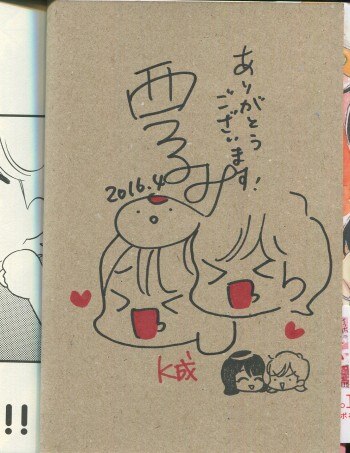 ありがとう
ございます!
2016.4
K成
!!